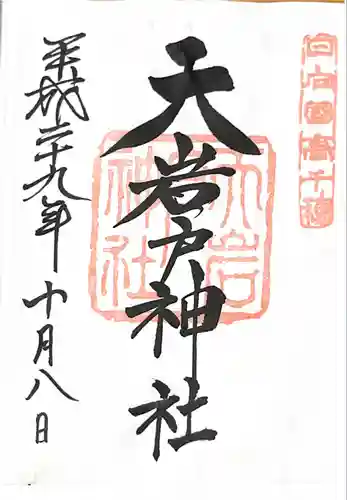 日向国高千穂
天岩戸神社
天岩戸神社
平成二十九年十月八日